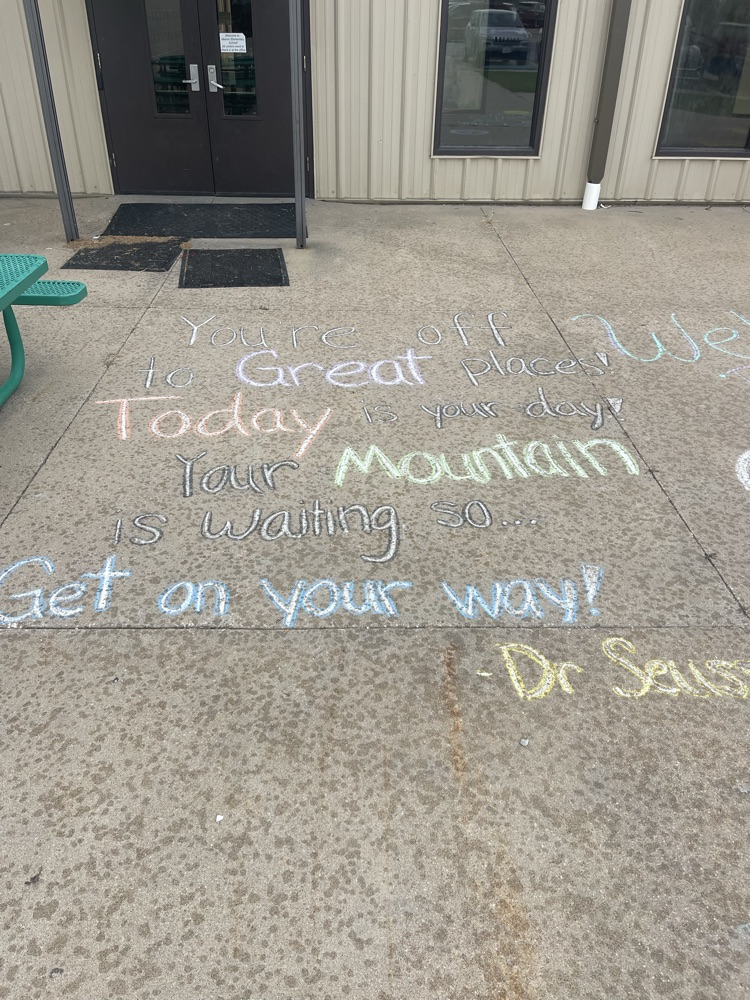 You're off
to Great places!
Today is your day!
Your Mountain
is waiting so...
Get on your way!
-Dr Seuss
Wel